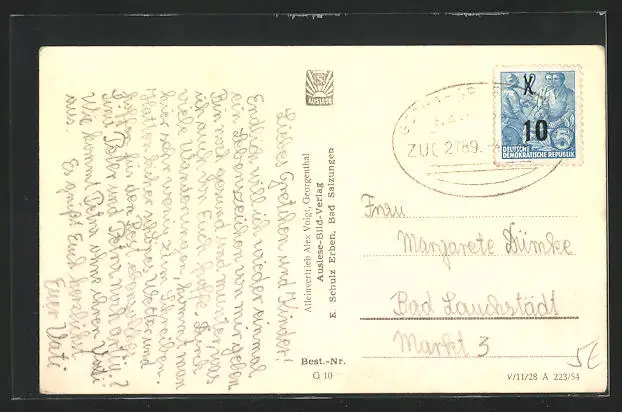 Liebes Gretchen und Kinder!
Endlich will ich wieder einmal
ein Lebenszeichen von mir geben.
Bin noch gesund und munter, was
ich auch von Euch hoffe. Durch
viele Wanderungen, kommt man
hier sehr wenig zum Schreiben.
Hatten bisher schönes Wetter und
hoffen für den Rest dasselbe.
Sind und Petra noch artig?
Wie kommt Petra ohne ihren Vati
aus. Es grüßt Euch herzlichst
Euer Vati
AUSLESE
Alleinvertrieb Alex Voigt, Georgenthal
Auslese-Bild-Verlag
E. Schulz Erben, Bad Salzungen
Best.-Nr.
G 10
ZUG 2789
10
DEUTSCHE
DEMOKRATISCHE REPUBLIK
Frau
Margarete Dümke
Bad Lauchstädt
Markt 3
5€
V/11/28 A 223/54